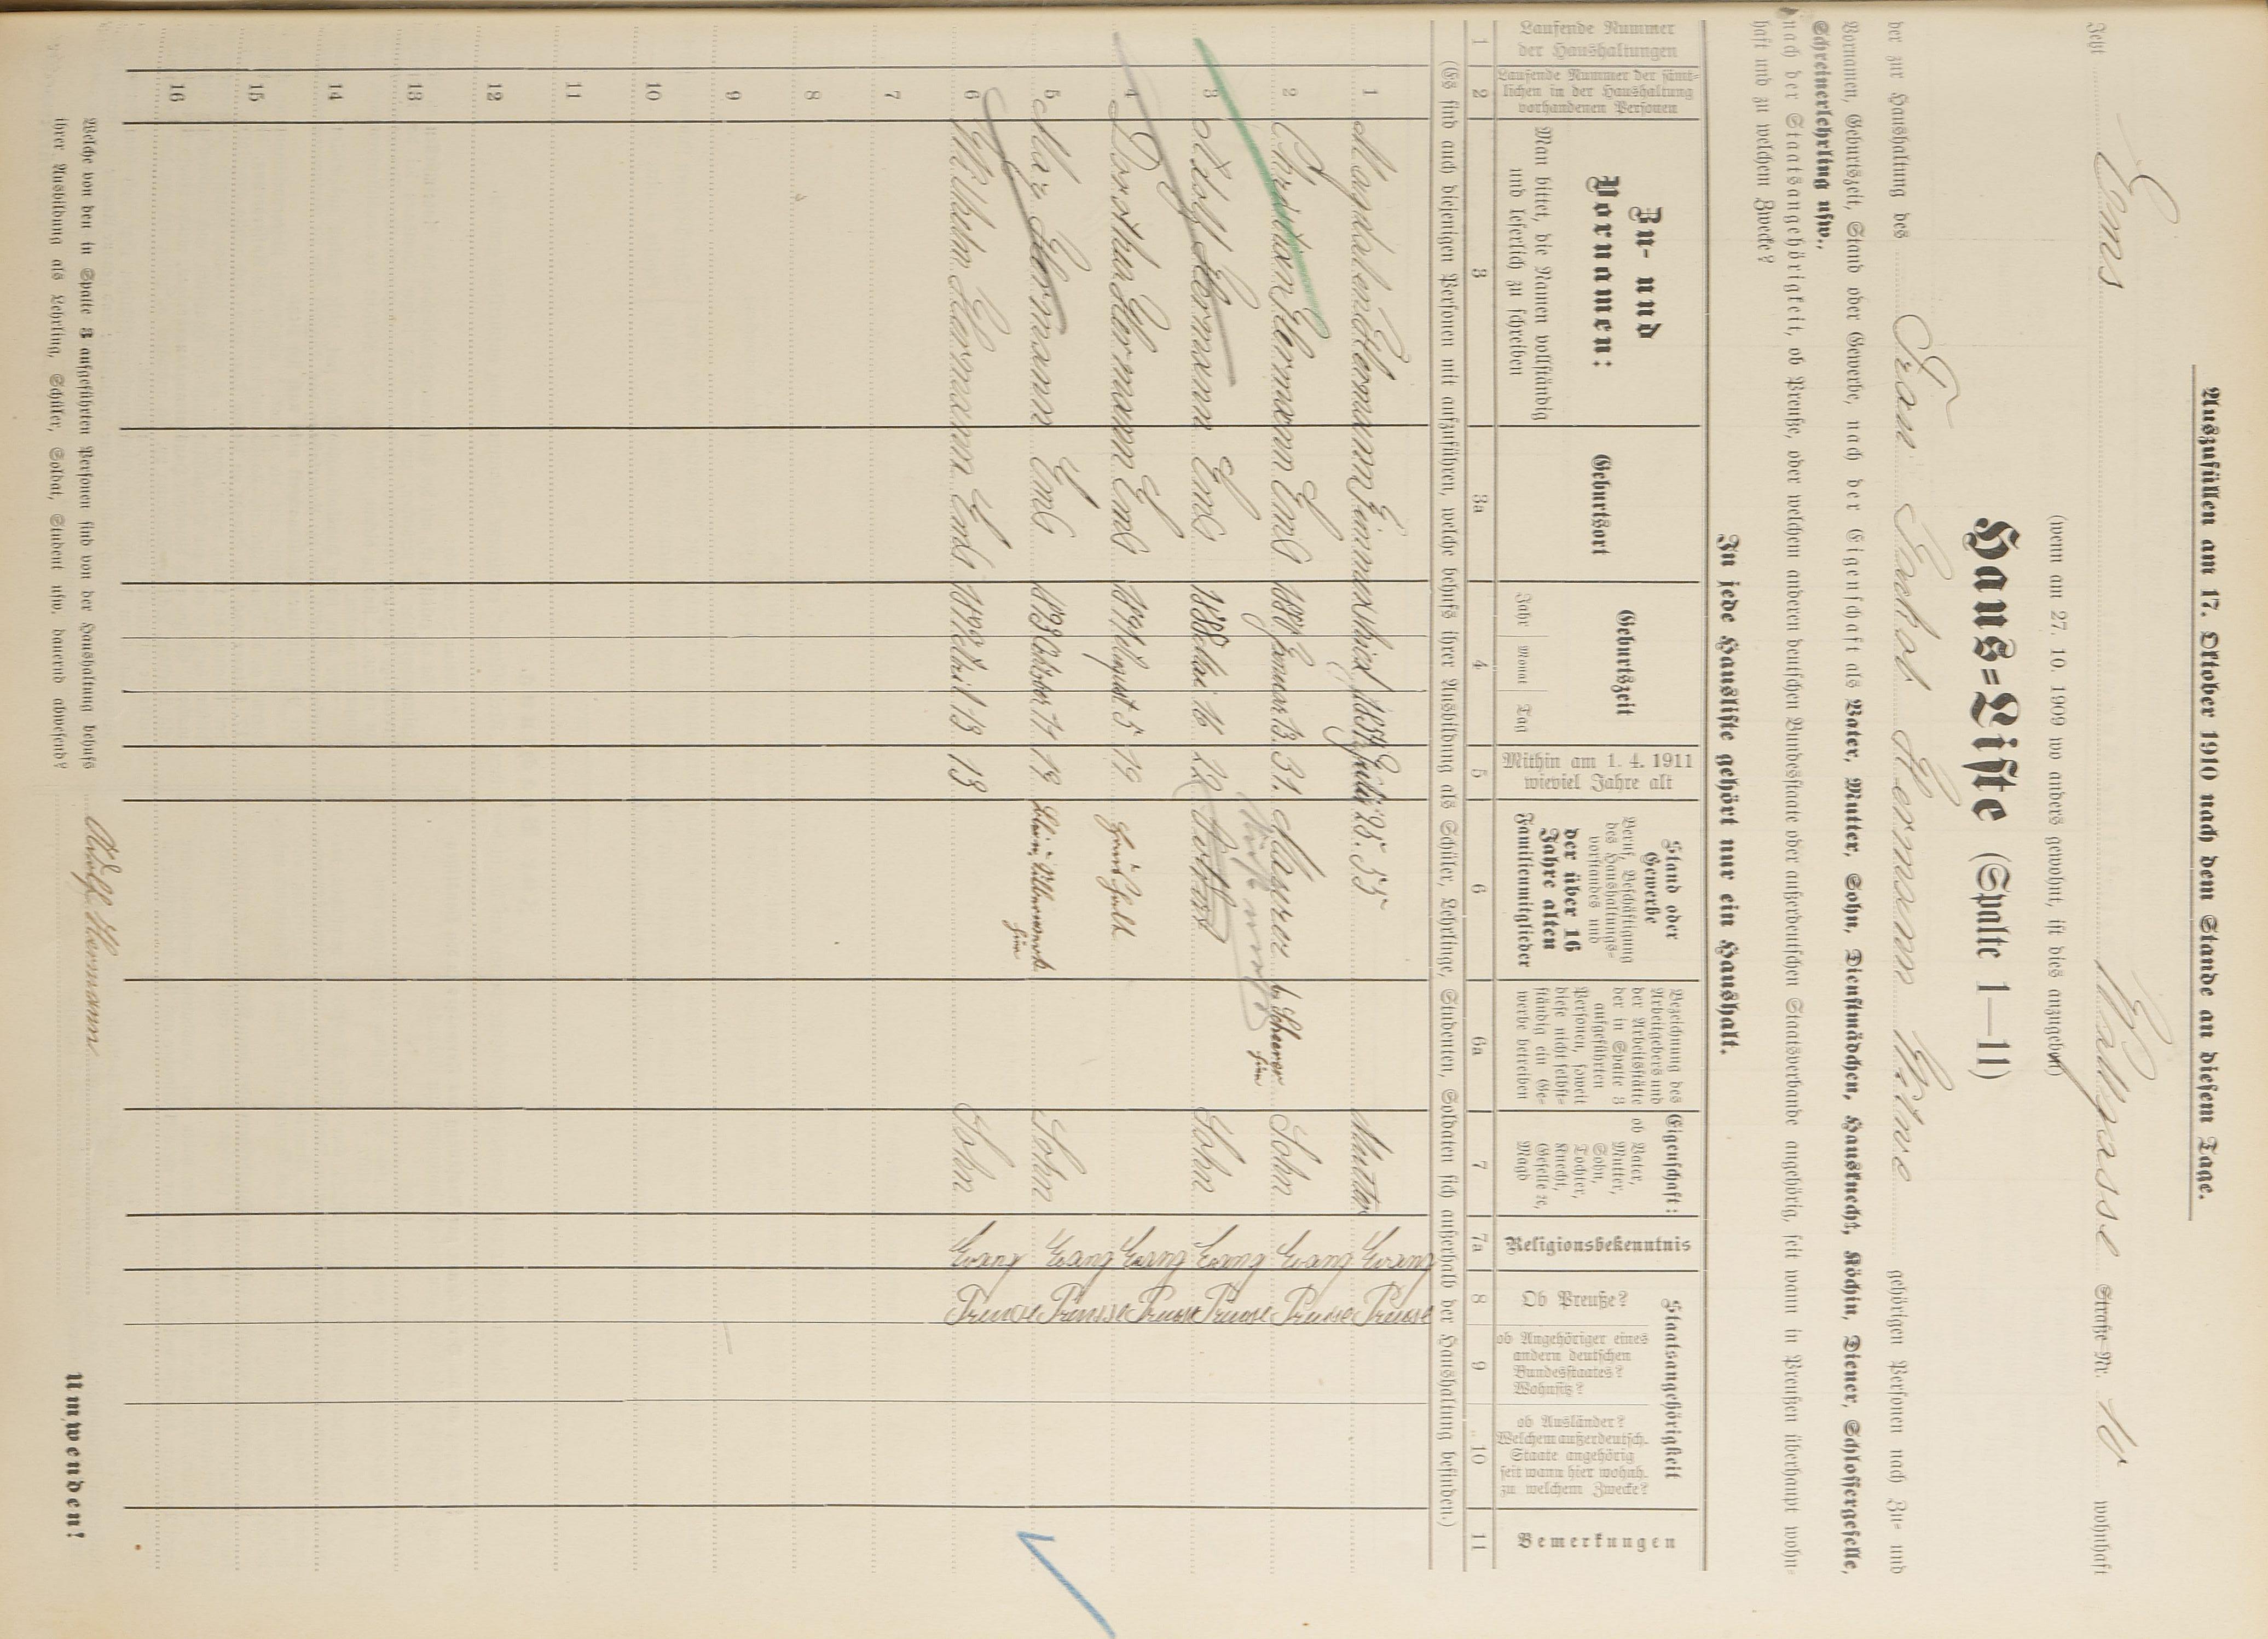 Auszufüllen am 17. Oktober 1910 nach dem Stande an diesem Tage.
Jetzt Ems Wallgasse Straße Nr. 10 wohnhaft
(wenn am 27. 10. 1909 wo anders gewohnt, ist dies anzugeben)
Haus=Liste (Spalte 1—11)
der zur Haushaltung des Frau Jackob Hermann Witwe gehörigen Personen nach Zu= und
Vornamen, Geburtszeit, Stand oder Gewerbe, nach der Eigenschaft als Vater, Mutter, Sohn, Dienstmädchen, Hausknecht, Köchin, Diener, Schlossergeselle,
Schreinerlehrling usw.,
nach der Staatsangehörigkeit, ob Preuße, oder welchem anderen deutschen Bundesstaate oder außerdeutschen Staatsverbande angehörig, seit wann in Preußen überhaupt wohn=
haft und zu welchem Zwecke?
In jede Hausliste gehört nur ein Haushalt.
Laufende Nummer der Haushaltungen
Laufende Nummer der sämt=lichen in der Haushaltung vorhandenen Personen
Zu- und Vornamen:
Man bittet, die Namen vollständig und leserlich zu schreiben
Geburtsort
Geburtszeit
Jahr Monat Tag
Mithin am 1. 4. 1911 wieviel Jahre alt
Stand oder Gewerbe
Beruf, Beschäftigung des Haushaltungs=vorstandes und
der über 16 Jahre alten Familienmitglieder
Bezeichnung des Arbeitgebers und der Arbeitsstätte der in Spalte 3 aufgeführten Personen, soweit diese nicht selbst=ständig ein Ge=werbe betreiben
Eigenschaft:
ob Vater, Mutter, Sohn, Tochter, Knecht, Geselle ec, Magd
Religionsbekenntnis
Staatsangehörigkeit
Ob Preuße?
ob Angehöriger eines andern deutschen Bundesstaates? Wohnsitz?
ob Ausländer? Welchem außerdeutsch. Staate angehörig seit wann hier wohnh. zu welchem Zwecke?
Bemerkungen
1 2 3 3a 4 5 6 6a 7 7a 8 9 10 11
(Es sind auch diejenigen Personen mit aufzuführen, welche behufs ihrer Ausbildung als Schüler, Lehrlinge, Studenten, Soldaten sich außerhalb der Haushaltung befinden.)
1 Magdalena Hermann 1857 Juli 25. 55 Mutter Evang Preusse
2 Christian Hermann Ems Januar 13. 31. Maurer b. Scheerer Sohn Evang Preusse
3 Adolf Hermann Ems 1888 Mai 16 22 Sohn Evang Preusse
4 Dorothea Hermann Ems 1891 August 5 19 Haushalt Evang Preusse
5 Max Hermann Ems 1893 Oktober 17 17 Sohn Evang Preusse
6 Wilhelm Hermann Ems April 13 13 Sohn Evang Preusse
7
8
9
10
11
12
13
14
15
16
Welche von den in Spalte 3 aufgeführten Personen sind von der Haushaltung behufs
ihrer Ausbildung als Lehrling, Schüler, Soldat, Student usw. dauernd abwesend?
Adolf Hermann
Umwenden!